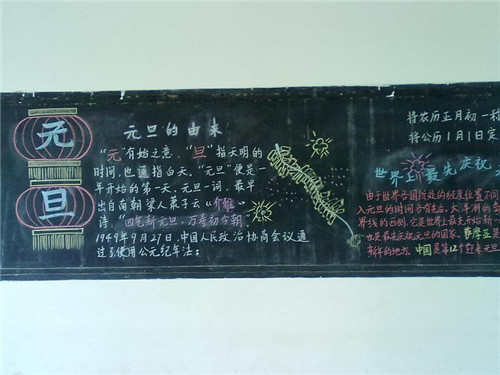 元
旦
元旦的由来
"元"有始之意,"旦"指天明的
时间,也通指白天,"元旦"便是一
年开始的第一天,元旦一词,最早
出自南朝梁人萧子云《介雅》
诗:"四气新元旦,万寿初今朝"
1949年9月27日,中国人民政治协商会议通
过了使用公元纪年法:
将农历正月初一称
将公历1月1日定
世界上最先庆祝
由于世界各国所处的经度位置不同
入元旦的时间各有先后,大洋洲的
界线的西侧,它是世界上最先开始新
也是最先庆祝元旦的国家。萨摩亚是
新年的地方。中国是第12个赶来元旦